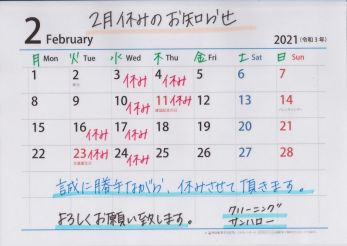 2月休みのお知らせ
2 February 2021 (令和3年)
月 Mon 火 Tue 水 Wed 木 Thu 金 Fri 土 Sat 日 Sun
1 2 3 休み 4 休み 5 6 7
8 9 10 休み 11 休み 12 13 14
建国記念の日 バレンタインデー
15 16 休み 17 休み 18 19 20 21
22 23 休み 24 休み 25 26 27 28
天皇誕生日
誠に勝手ながら、休みさせて頂きます。
よろしくお願い致します。
クリーニング
サンハロー